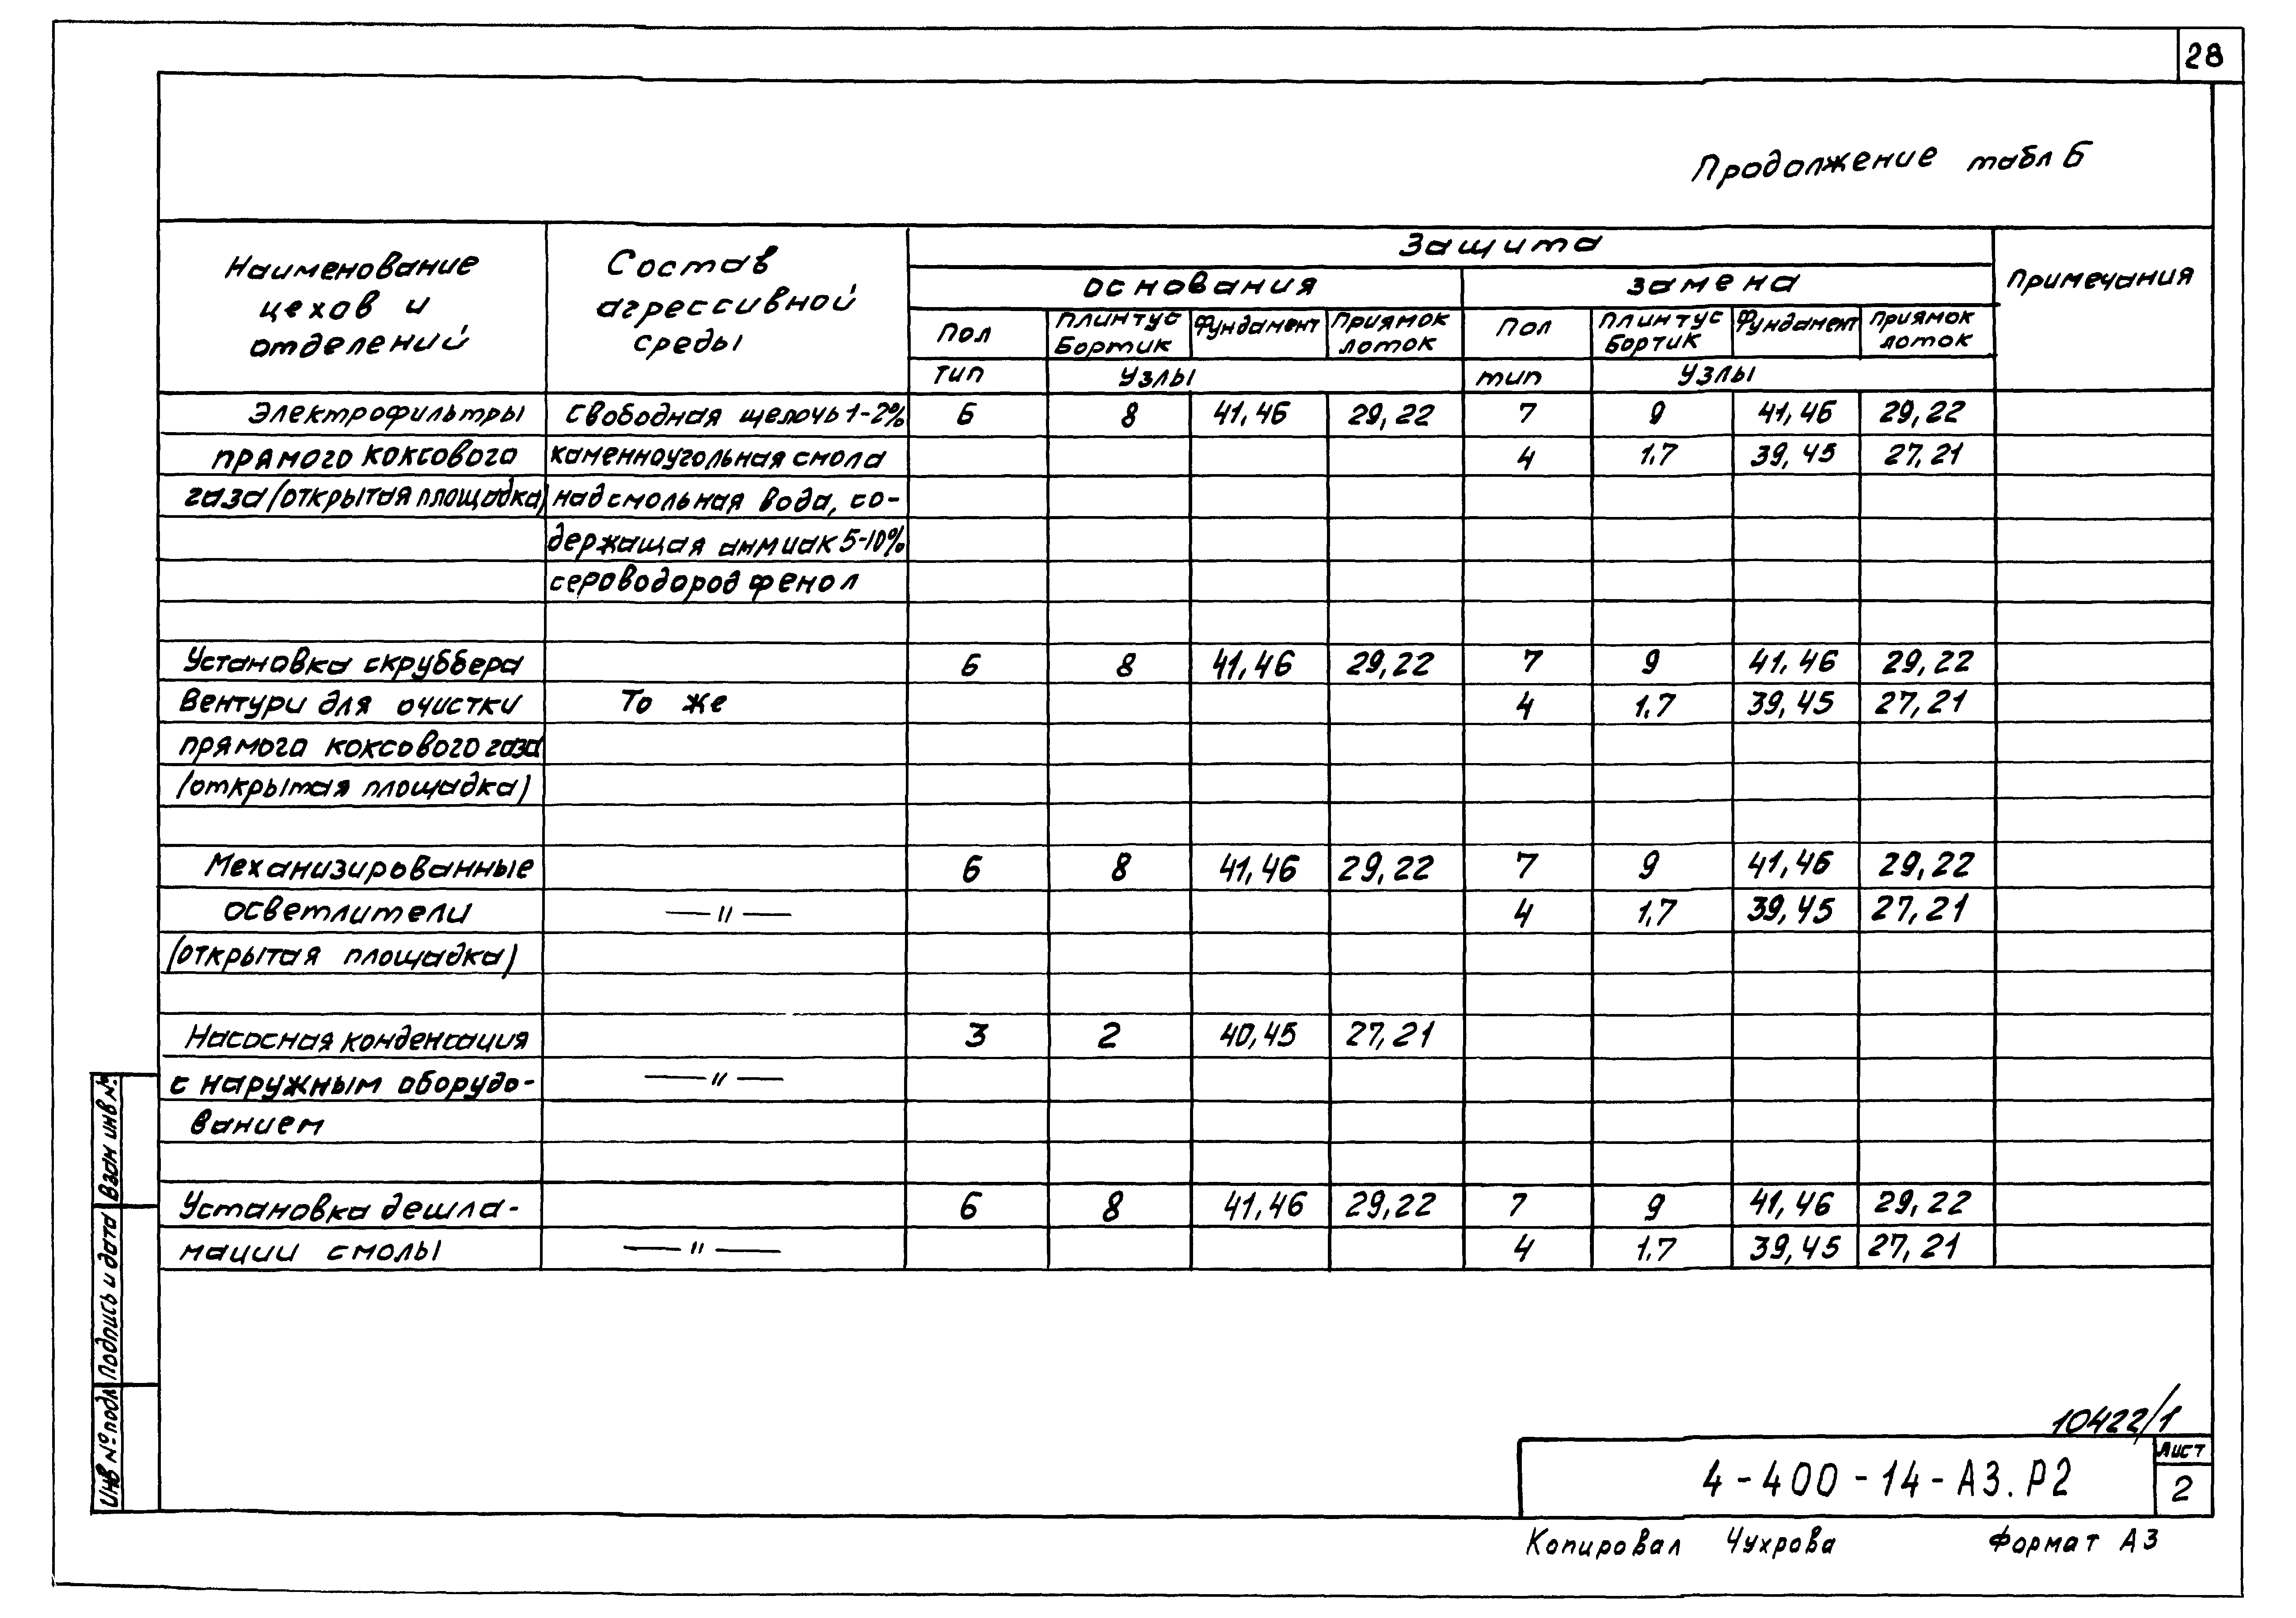 28
Продолжение табл Б
Наименование цехов и отделений
Состав агрессивной среды
Защита
Примечания
основания
замена
Пол
Плинтус Бортик
Фундамент
Приямок лоток
Пол
Плинтус бортик
Фундамент
Приямок лоток
тип
Узлы
тип
Узлы
Электрофильтры свободная щелочь 1-2% 6 8 41,46 29,22 7 9 41,46 29,22
прямого коксового каменноугольная смола 4 1.7 39,45 27,21
газа (открытая площадка) надсмольная вода, со-
держащая аммиак 5-10%
сероводород фенол
Установка скруббера 6 8 41,46 29,22 7 9 41,46 29,22
Вентури для очистки То же 4 1.7 39,45 27,21
прямога коксового газа
(открытая площадка)
Механизированные 6 8 41,46 29,22 7 9 41,46 29,22
осветлители —"— 4 1.7 39,45 27,21
(открытая площадка)
Насосная конденсация 3 2 40,45 27,21
с наружным оборудо- —"—
ванием
Установка дешла- 6 8 41,46 29,22 7 9 41,46 29,22
мации смолы —"— 4 1.7 39,45 27,21
Взам инв №
Подпись и дата
Инв № подл
10422/1
4-400-14-А3.Р2
Лист
2
Копировал Чухрова Формат А3